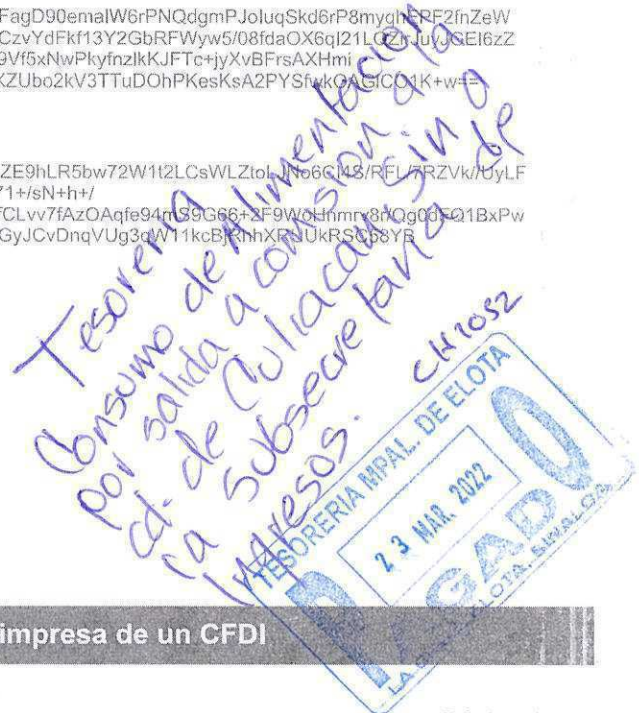 FagD90emalW6rPNQdgmPJoluqSkd6rP8myqhERF2fnZeW
CzvYdFkf13Y2GbRFWyw5/08fdaOX6ql21LQZrJuyJGEI6zZ
9Vf5xNwPkyfnzlkKJFTc+jyXvBFrsAXHmi
KZUbo2kV3TTuDOhPKesKsA2PYSfwkOAGfCO1K+w==
ZE9hLR5bw72W1t2LCsWLZtoLJNo6Cl4S/RFL/7RZVk//UyLF
71+/sN+h+/
fCLvv7fAzOAqfe94mS9G66+2F9WoHnmry8r/Qg0dFQ1BxPw
GyJCvDnqVUg3qW11kcBjRhhXRNUkRSC58YB
Tesoreria
Consumo de Alimentacion
por salida a comision a la
cd. de Culiacan, Sin a
la Subsecretaria de
Ingresos.
CH1052
TESORERIA MPAL. DE ELOTA
23 MAR. 2022
PAGADO
LA CRUZ, ELOTA, SINALOA
impresa de un CFDI